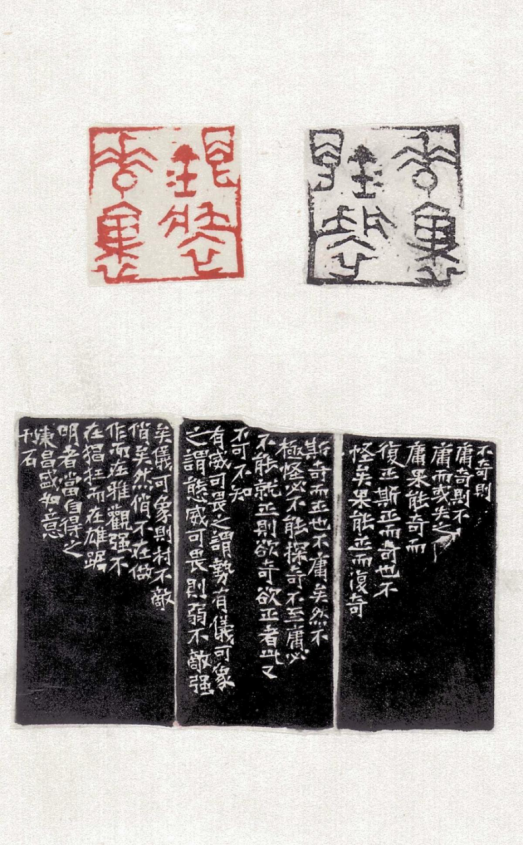 不奇則
庸奇則不
庸而或失之
庸果能奇而
復正斯正而奇也不
怪矣果能正而復奇
斯奇而正也不庸矣然不
極怪必不能探奇不至庸必
不能就正則欲奇欲正者此又
不可不知
有威可畏之謂勢有儀可象
之謂態威可畏則弱不敵强
矣儀可象則村不敵
俏矣然俏不在做
作而在雅觀强不
在猖狂而在雄踞
明者當自得之
昌盛如意
刊石